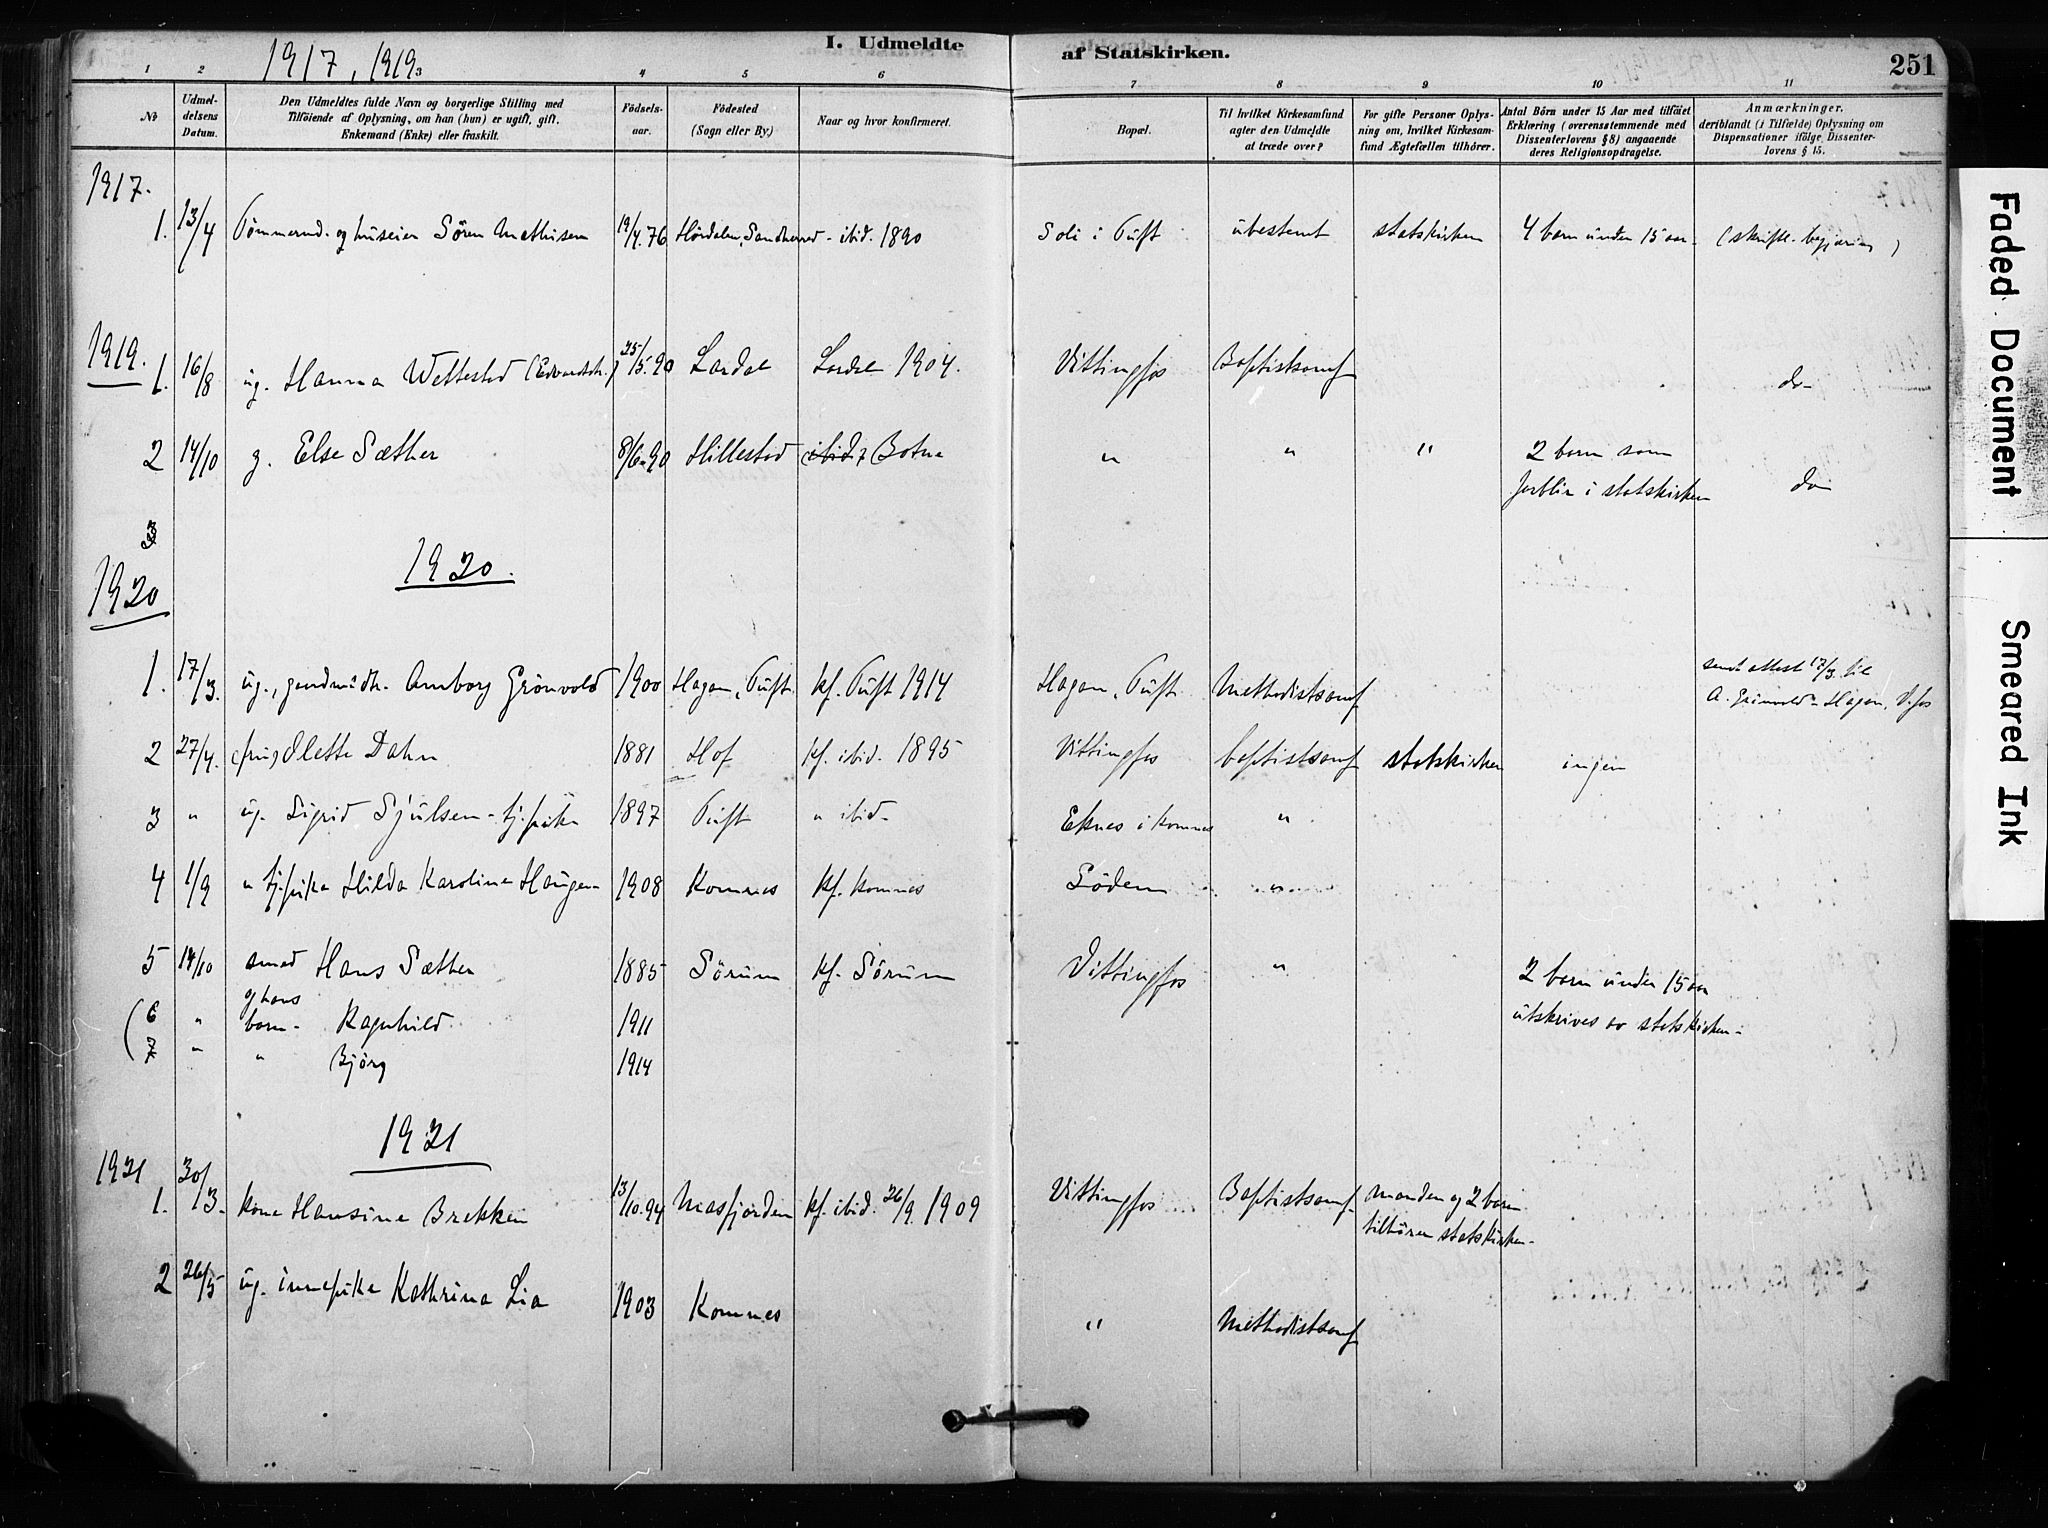 1917, 1919
I. Udmeldte af Statskirken.
251
1 2 3 4 5 6 7 8 9 10 11
No
Udmel-
delsens
Datum.
Den Udmeldtes fulde Navn og borgerlige Stilling med
Tilföiende af Oplysning, om han (hun) er ugift, gift,
Enkemand (Enke) eller fraskilt.
Födsels-
aar.
Födested
(Sogn eller By.)
Naar og hvor konfirmeret.
Bopæl.
Til hvilket Kirkesamfund
agter den Udmeldte
at træde over?
For gifte Personer Oplys-
ning om, hvilket Kirkesam-
fund Ægtefællen tilhörer.
Antal Börn under 15 Aar med tilföiet
Erklæring (overensstemmende med
Dissenterlovens § 8) angaaende
deres Religionsopdragelse.
Anmærkninger,
deriblandt (i Tilfælde) Oplysning om
Dispensationer ifölge Dissenter-
lovens § 15.
1917.
1. 13/4 Tömmermd. og huseier Sören Mathisen 19/4.76 Sandherred - ibid. 1890 Soli i Tuft ubestemt statskirken 4 barn under 15 aar - (skriftl. begjæring)
1919.
1. 16/8 ug. Hanna Wettestad (Edvardsdtr.) 25/5.90 Lardal Lardal 1904. Vittingfos Baptistsamf do-
2 14/10 g. Else Sæther 8/6-90 Hillestad ibid, Botne " " " 2 barn som
forblir i statskirken do
3
1920.
1920
1. 17/3. ug., gaardmdtr. Amborg Grönvold 1900 Hagan, Tuft. kf. Tuft 1914 Hagan, Tuft Methodistsamf sendt attest 17/3 til
A. Grönvold - Hagan, V.fos
2 27/4. (fru) Olette Dahn 1881 Hof kf. ibid. 1895 Vittingfos baptistsamf statskirken ingen
3 " ug. Sigrid Sjulsen - tj.pike 1897 Tuft " ibid- Eknes i Komnes "
4 1/9 " tj.pike Hilda Karoline Haugen 1908 Komnes kf. Komnes Söden "
5 14/10 smed Hans Sæther 1885 Sörum kf. Sörum Vittingfos " 2 barn under 15 aar
og hans
(6 " barn - Ragnhild 1911 utskrives av statskirken -
7 " " Björg 1914
1921
1921
1. 30/3. kone Hansine Brekken 13/10.94 Masfjorden kf. ibid. 26/9. 1909 Vittingfos Baptistsamf. Manden og 2 barn
tilhörer statskirken -
2 26/5 ug. innepike Kathrine Lia 1903 Komnes " Methodistsamf
Faded Document
Smeared Ink